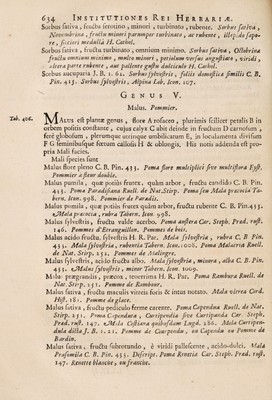 634 INSTITUTIONES REI HERBARIÆ.
Sorbus sativa, fructu serotino, minori, turbinato, rubente. Sorbus sativa,
Novembrina, fructu minori parumper turbinato, ac rubente,
scitiori medulla H. Cathol.
Sorbus sativa, fructu turbinato, omnium minimo. Sorbus sativa, Octobrina
fructu omnium minimo, malo minori, petiolum versus angustiato, viridi,
altera parte rubente, aut pallente gustu dulciori H. Cathol.
Sorbus aucuparia J. B. 1. 62. Sorbus sylvestris, foliis domesticæ similis C. B.
Pin. 415. Sorbus sylvestris, Alpina Lob. Icon. 107.
GENUS V.
Malus. Pommier.
Tab. 406.
MALUS est plantæ genus, flore A rosaceo, plurimis scilicet petalis B in
orbem positis constante, cujus calyx C abit deinde in fructum D carnosum,
ferè globosum, plerumque utrinque umbilicatum E, in loculamenta divisum
F G seminibusque fœtum callosis H & oblongis, His notis addenda est pro-
pria Mali facies.
Mali species sunt
Malus flore pleno C. B. Pin. 433. Poma flore multiplici sive multiflora Eyst.
Pommier a fleur double.
Malus pumila, quæ potiùs frutex, quàm arbor, fructu candido C. B. Pin.
433. Poma Paradisana Ruell. de Nat. Stirp. Poma seu Mala præcocia Ta-
bern. Icon. 998. Pommier de Paradis.
Malus pumila, quæ potiùs frutex quàm arbor, fructu rubente C. B. Pin. 433.
Mala præcocia, rubra Tabern. Icon. 998.
Malus sylvestris, fructu valde acerbo. Poma austera Car. Steph. Præd. rust.
146. Pommes d'Estranguillon. Pommes de bois.
Malus acido fructu, sylvestris H. R. Par. Mala sylvestria, rubra C. B. Pin.
433. Mala sylvestria, rubentia Tabern. Icon. 1008. Poma Malacria Ruell.
de Nat. Stirp. 252. Pommes de Malingre.
Malus sylvestris, acido fructu albo. Mala sylvestria, minora, alba C. B. Pin.
433. Malus sylvestris, minor Tabern. Icon. 1009.
Malus prægrandis, præcox, rotundior H. R. Par. Poma Rambura Ruell. de
Nat. Stirp. 251. Pomme de Rambour.
Malus sativa, fructu maculis vitreis foris & intus notato. Mala vitrea Cord.
Hist. 181. Pomme de glace.
Malus sativa, fructu pediculo ferme carente. Poma Capendua Ruell. de Nat.
Stirp. 251. Poma Cipendura, Curtipendia sive Curtipenda Car. Steph.
Præd. rust. 147. Mala Cestiana quibusdam Lugd. 286. Mala Curtipen-
dula dicta J. B. 1. 21. Pomme de Courpendu, en Capendu ou Pomme de
Bardin.
Malus sativa, fructu subrotundo, è viridi pallescente, acido-dulci. Mala
Prasomila C. B. Pin. 433. Descript. Poma Renetia Car. Steph. Præd. rust.
147. Renette blanche, ou franche.